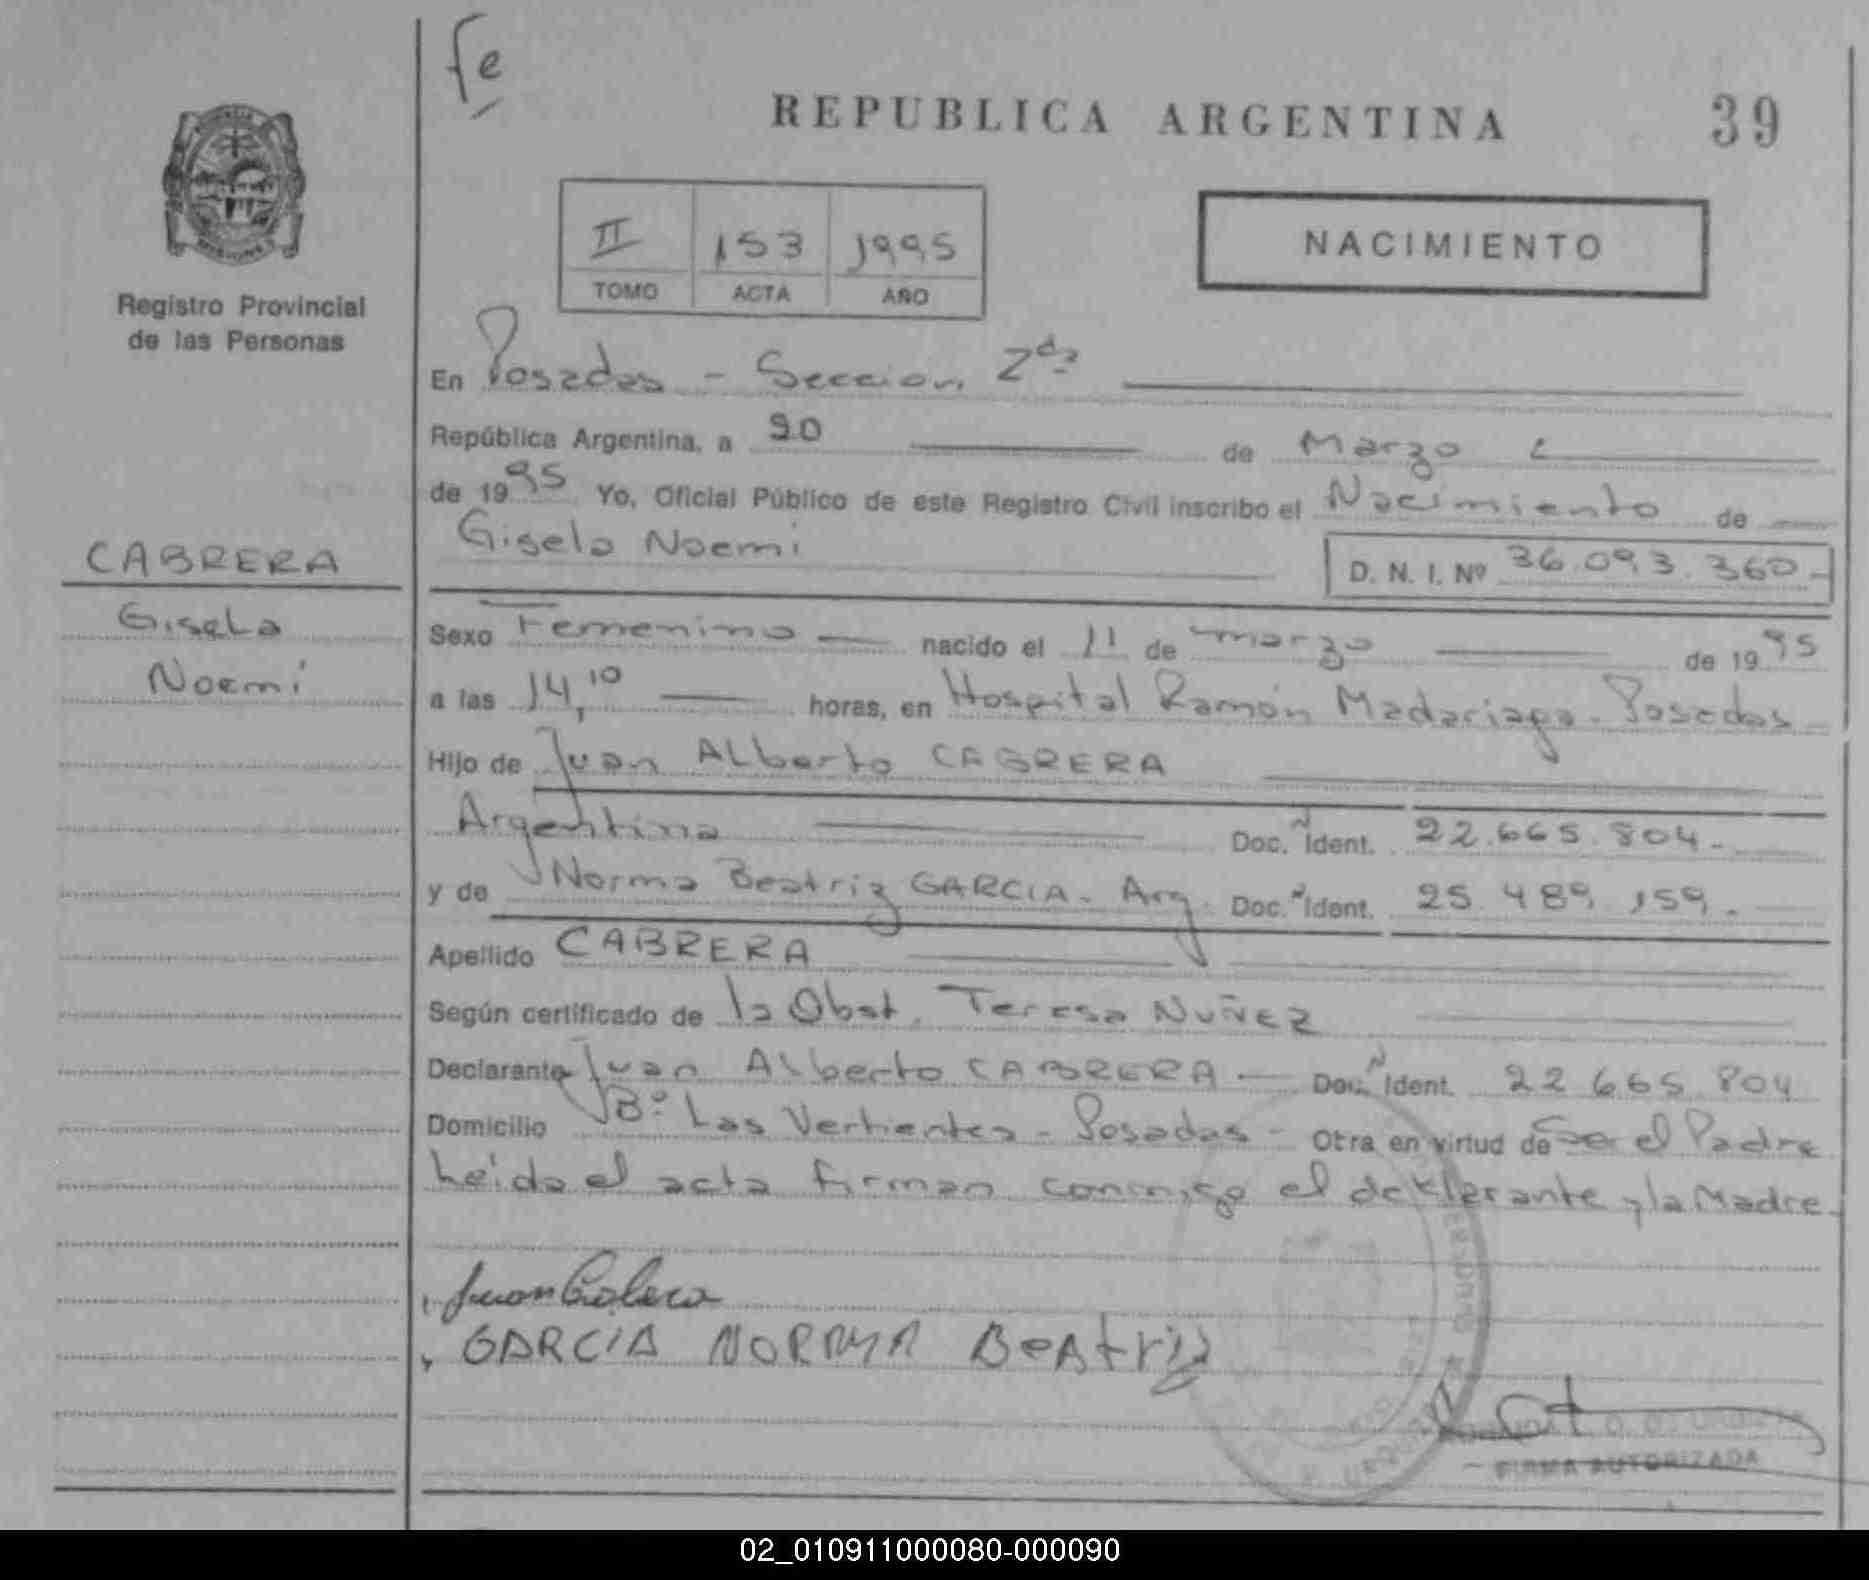 fe
REPUBLICA ARGENTINA 39
II 153 1995
TOMO ACTA AÑO
NACIMIENTO
Registro Provincial
de las Personas
CABRERA
Gisela
Noemi
En Posadas - Seccion 2da
República Argentina, a 20 de Marzo
de 1995 Yo, Oficial Público de este Registro Civil inscribo el Nacimiento de
Gisela Noemi D. N. I. Nº 36.093.360.-
Sexo Femenino nacido el 11 de marzo de 1995
a las 14,10 horas, en Hospital Ramón Madariaga - Posadas -
Hijo de Juan Alberto CABRERA
Argentina Doc. Ident. 22.665.804.-
y de Norma Beatriz GARCIA - Arg. Doc. Ident. 25.489.159.-
Apellido CABRERA
Según certificado de la Obst. Teresa NUÑEZ
Declarante Juan Alberto CABRERA - Doc. Ident. 22.665.804
Domicilio Bº Las Vertientes - Posadas - Otra en virtud de Ser el Padre
Leída el acta firman conmigo el declarante y la Madre.
GARCIA NORMA Beatriz
FIRMA AUTORIZADA
02_010911000080-000090